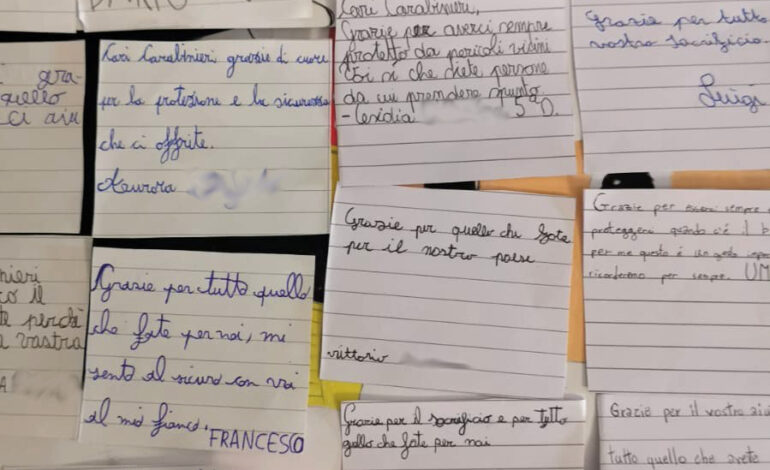 Cari Carabinieri grazie di cuore
per la protezione e la sicurezza
che ci offrite.
Aurora
Cari Carabinieri,
Grazie per averci sempre
protetto da pericoli vicini
Voi sì che siete persone
da cui prendere spunto.
5°D.
Grazie per tutto
vostro sacrificio.
Luigi
gra-
quello
ci aiu
Grazie per quello che fate
per il nostro paese
vittorio
Grazie per esserci sempre
proteggerci quando c'è il b
per me questo è un gesto
ricorderemo per sempre. UM
nieri
co il
te perchè
a vostra
A
Grazie per tutto quello
che fate per noi, mi
sento al sicuro con voi
al mio fianco.
FRANCESCO
Grazie per il sacrificio e per tutto
quello che fate per noi
Grazie per il vostro aiu
tutto quello che avete